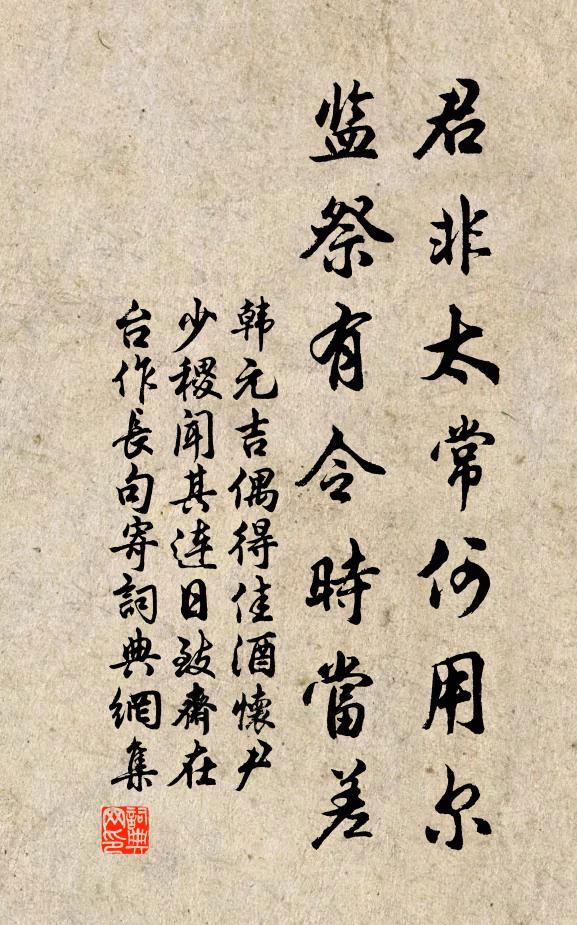 君非太常何用尔
监祭有令時當差
韩元吉偶得佳酒懷尹
少稷闻其连日致齋在
台作長句寄詞典網集
詞典
网印